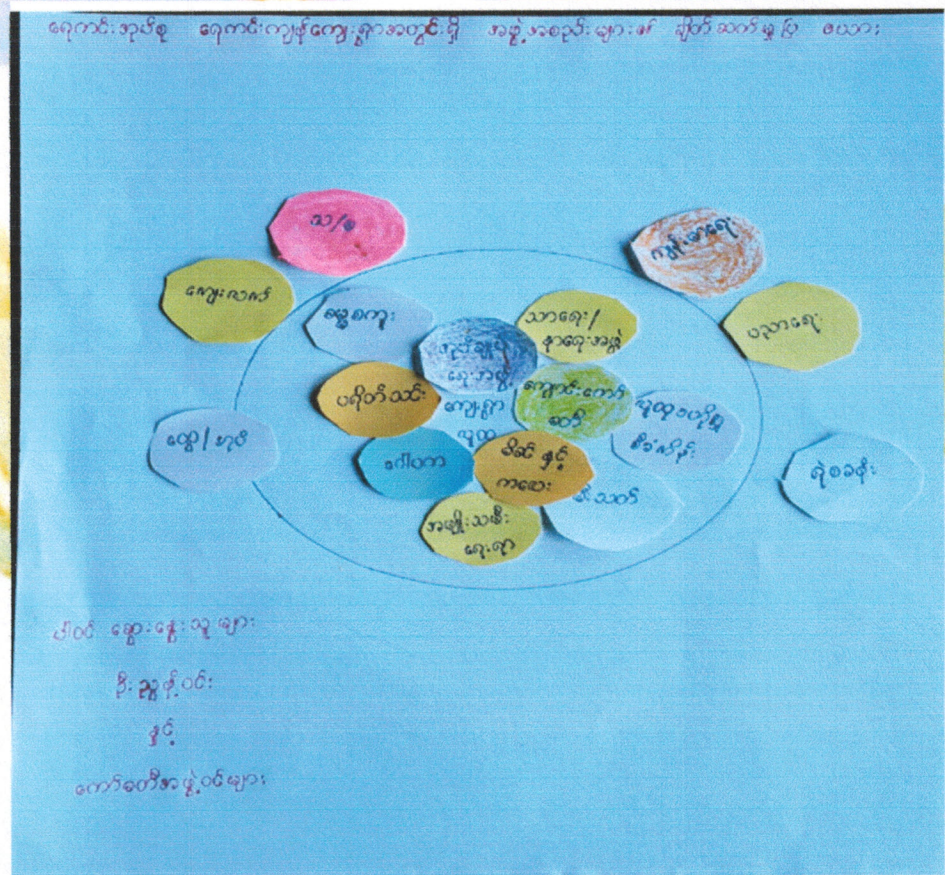 ရေကင်းအုပ်စု ရေကင်းကျွန်ကျေးရွာအတွင်းရှိ အဖွဲ့အစည်းများ၏ ချိတ်ဆက်မှုပြ ဇယား
သ/စ
ကျန်းမာရေး
ကျေးလက်
ဓမ္မစကူး
သာရေး/
နာရေးအဖွဲ့
ပညာရေး
အုပ်ချုပ်
ရေးအဖွဲ့
ပရိတ်သင်း
ကျေးရွာ
လူထု
ကျောင်းကော်
မတီ
လူထုဗဟိုပြု
စီမံကိန်း
ထွေ/အုပ်
ဒါယကာ
မိခင် နှင့်
ကလေး
မီးသတ်
ရဲစခန်း
အမျိုးသမီး
ရေးရာ
ပါဝင် ဆွေးနွေးသူများ
ဦးညွန့်ဝင်း
နှင့်
ကော်မတီအဖွဲ့ဝင်များ